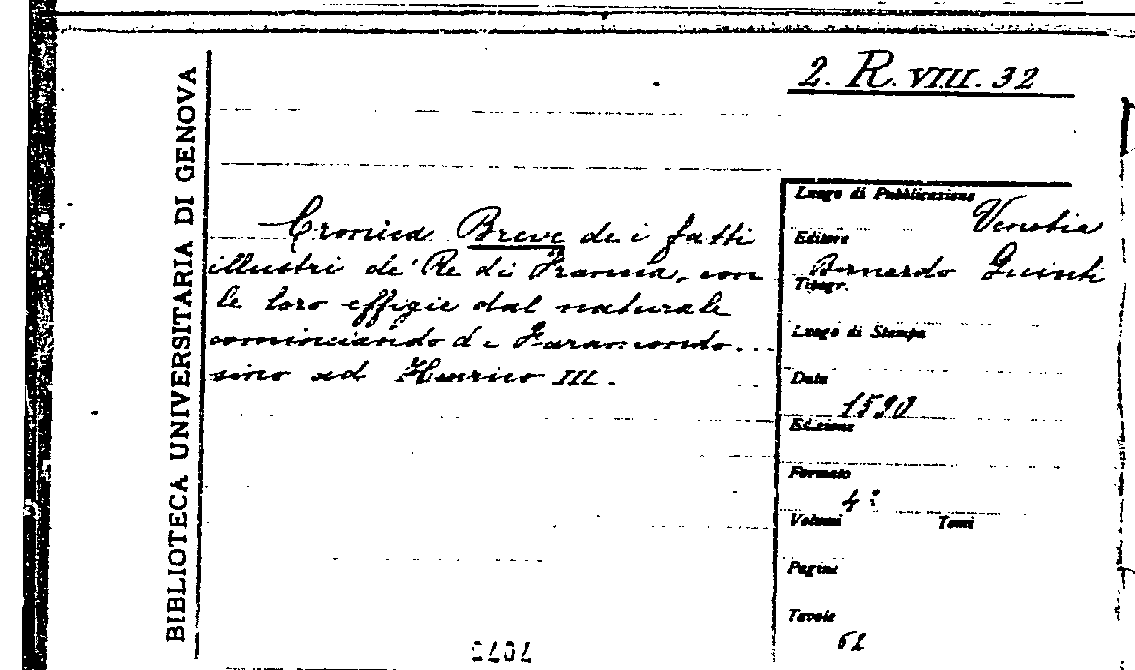 2. R. VIII. 32
BIBLIOTECA UNIVERSITARIA DI GENOVA
Cronica Breve de i fatti
illustri de' Re di Francia, con
le loro effigie dal naturale
cominciando da Faramondo...
sino ad Henrico III.
Luogo di Pubblicazione
Venetia
Editore
Bernardo Giunti
Tipogr.
Luogo di Stampa
Data
1590
Edizione
Formato
4º
Volumi Tomi
Pagine
Tavole
62